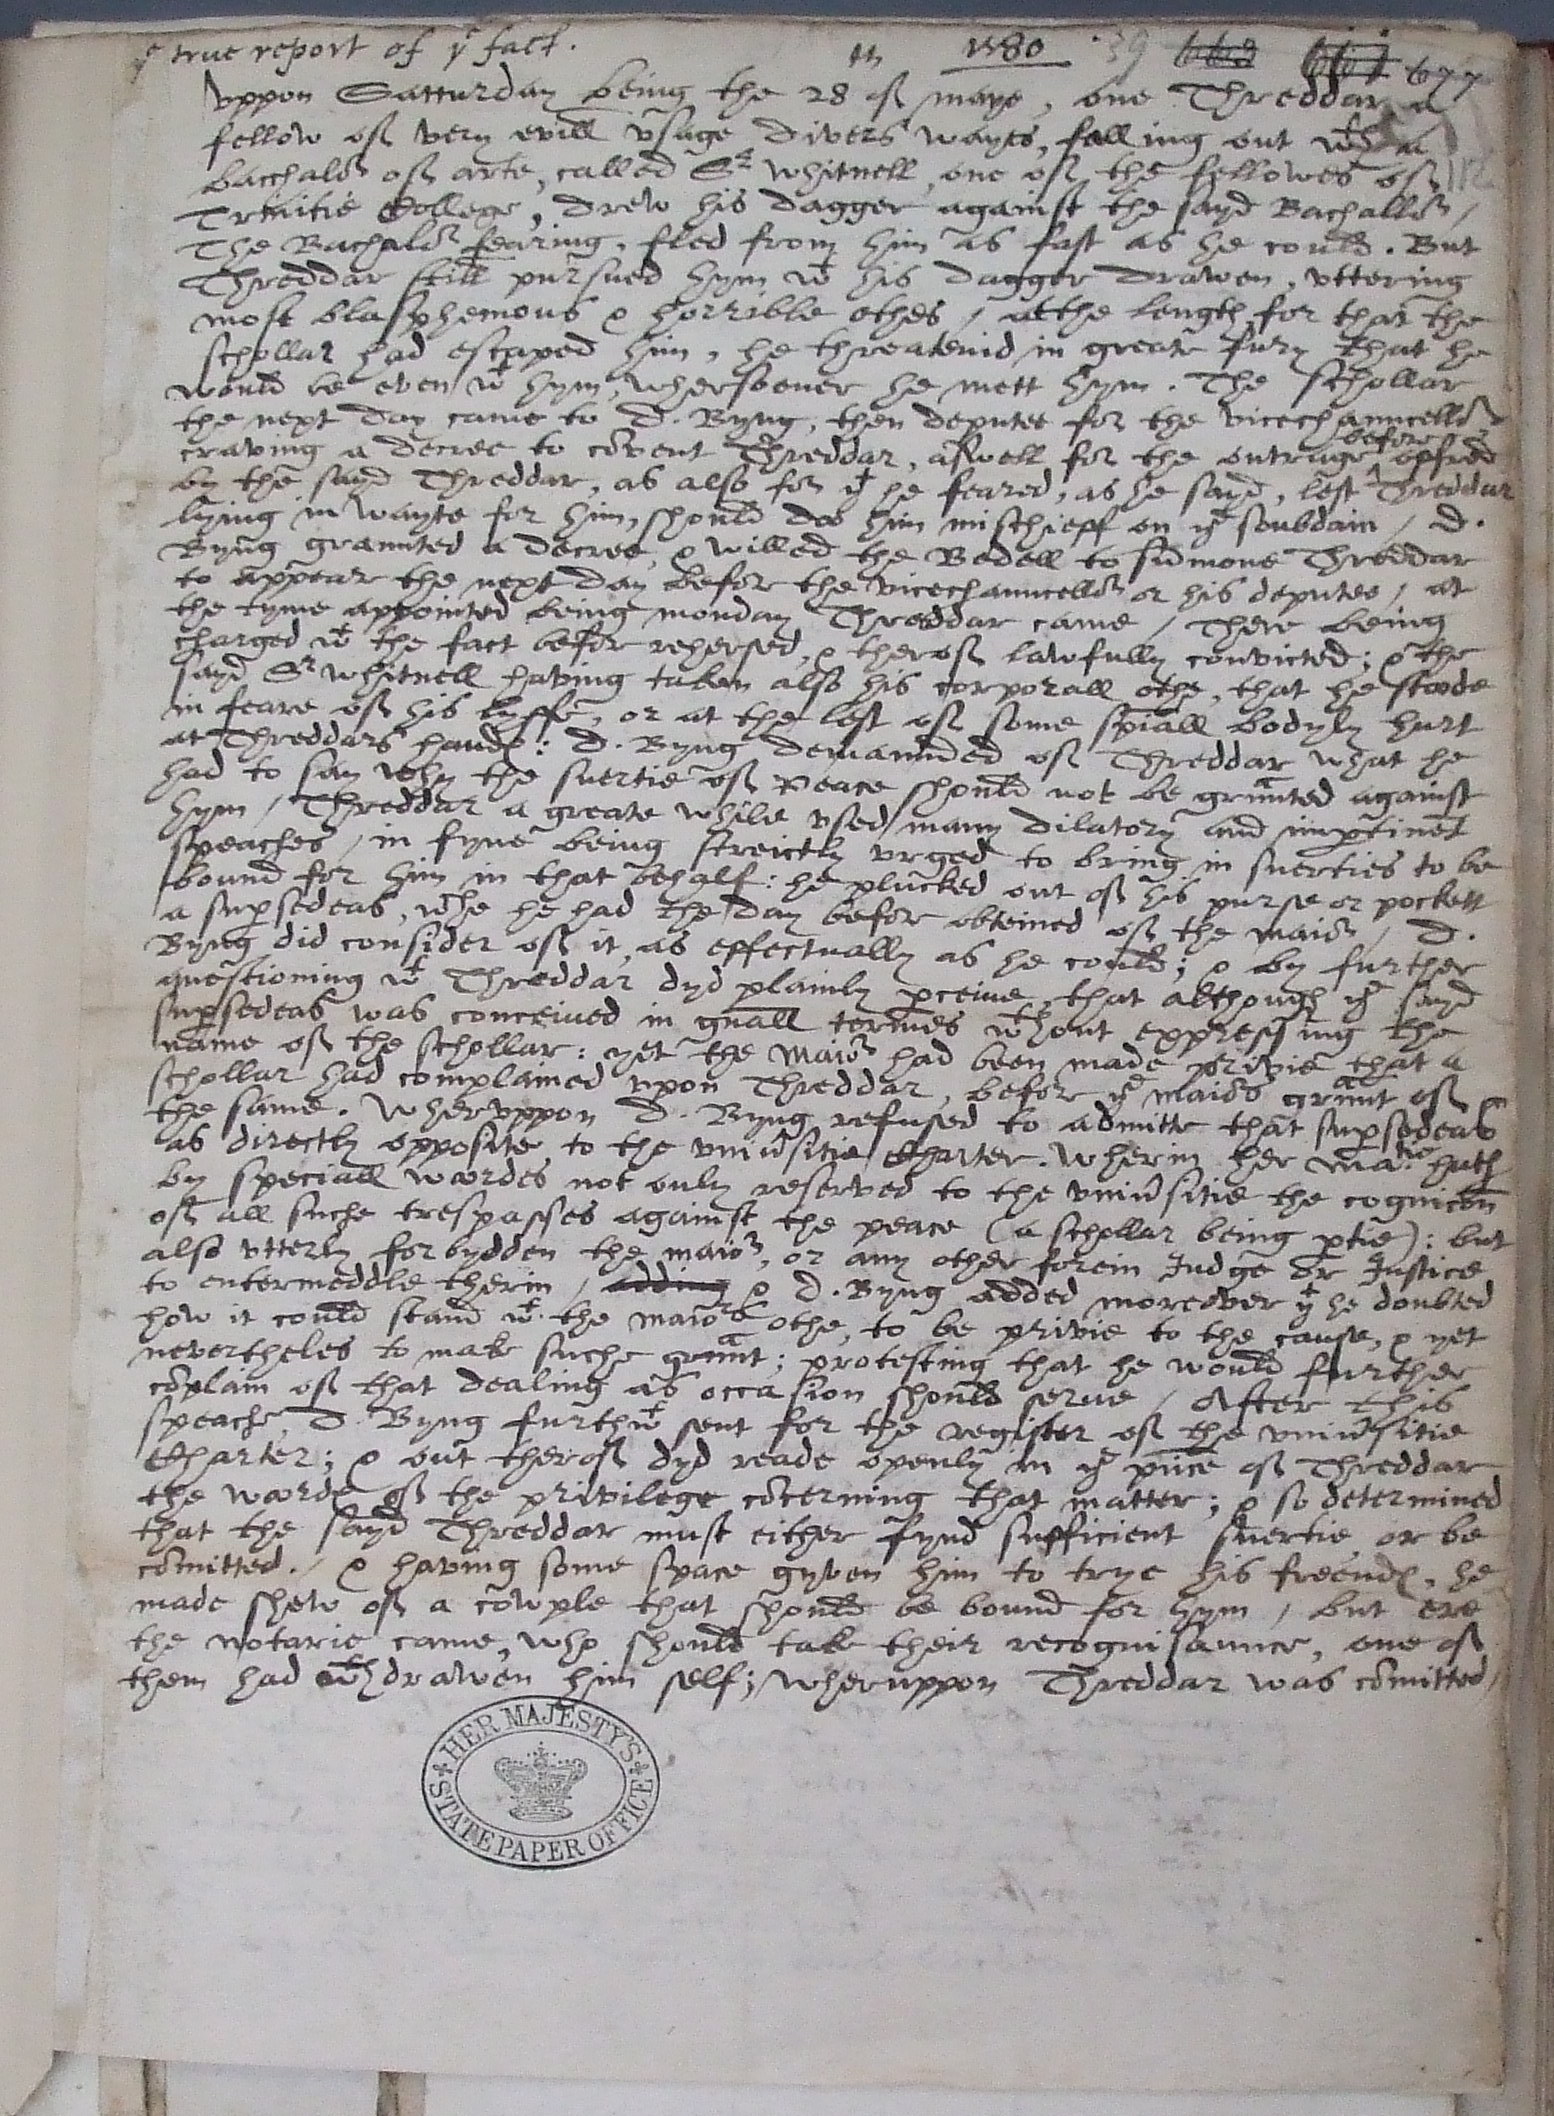 yͤ true report of yͤ fact.
1580 39 677
Vppon Satturday being the 28 of maye, one Threddar a
fellow of very evill vsage divers wayes, falling out wᵗʰ a
bacchalor of arte, called Sʳ Whitnell, one of the fellowes of
Trinitie College, drew his dagger against the sayd Bachallor /
The Bachalor fearing, fled from him as fast as he could. But
Threddar still pursued hym wᵗ his dagger drawen, vttering
most blasphemous & horrible othes / at the length for that the
schollar had escaped him, he threatenid in greate fury that he
would be even wᵗ hym, whersoever he mett hym. The schollar
the next day came to D. Byng, then deputee for the vicechanncellor
craving a decree to cōvent Threddar, aswell for the outrage before offred
by the sayd Threddar, as also for yᵗ he feared, as he sayd, lest Threddar
lying in wayte for him, should doo him mischieff on yͤ soubdain / D.
Byng graunted a decree, & willed the Bedell to sūmone Threddar
to appear the next day befor the vicechanncellor or his deputee / at
the tyme appointed being monday Threddar came / There being
charged wᵗ the fact befor rehersed, & therof lawfully convicted; & the
sayd Sʳ Whitnell having taken also his corporall othe, that he stoode
in feare of his lyffe, or at the lest of some spiall bodyly hurt
at Threddars hande: D. Byng demaunded of Threddar what he
had to say why the suertie of Peace should not be graunted against
hym / Threddar a greate while vsed many dilatory and impertinēt
speaches / in fyne being streictly vrged to bring in suerties to be
bound for him in that behalf: he plucked out of his purse or pockett
a supsedeas, wᶜʰe he had the day befor obteined of the maior / D.
Byng did consider of it as effectually as he could; & by further
questioning wᵗ Threddar dyd plainly pceive, that although yͤ sayd
supsedeas was conceived in gnall termes wᵗhout expressing the
name of the schollar: yet the Maior had been made privie that a
schollar had complained vpon Threddar, befor yͤ maiors graunt of
the same. Whervppon D. Byng refused to admitte that supsedeas
as directly opposite to the vniūsitie Charter. Wherin her maᵗⁱᵉ hath
by speciall woordes not only reserved to the vniūsitie the cognicōn
of all suche trespasses against the peace (a schollar being ptie): but
also vtterly forbydden the maior, or any other forein Judge or Justice
to entermeddle therin / adding & D. Byng added moreover yᵗ he doubted
how it could stand wᵗ the maiors othe, to be privie to the cause, & yet
nevertheles to mak suche graunt; protesting that he would further
cōplain of that dealing as occasion should serve / After this
speache D. Byng furthwᵗ sent for the register of the vniūsitie
Charter; & out therof dyd reade openly in yͤ pñce of Threddar
the woordes of the privilege cōcerning that matter; & so determined
that the sayd Threddar must either fynd sufficient suertie or be
cōmitted. / & having some space gyven him to trye his freendes, he
made shew of a cowple that should be bound for hym / but ere
the notarie came, who should tak their recognisaunce, one of
them had wᵗhdrawen him self; / wheruppon Threddar was cōmitted /
HER MAJESTY'S
STATE PAPER OFFICE